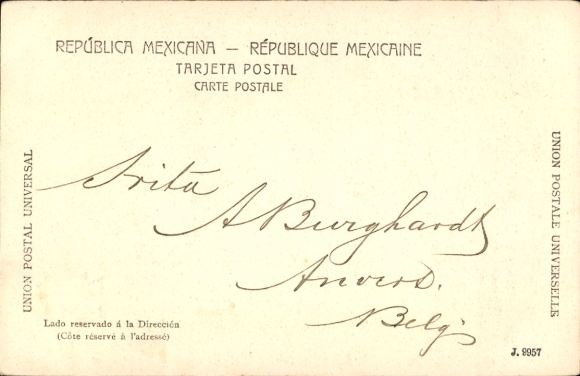 REPÚBLICA MEXICAÑA — RÉPUBLIQUE MEXICAINE
TARJETA POSTAL
CARTE POSTALE
UNION POSTAL UNIVERSAL
UNION POSTALE UNIVERSELLE
Srita
A Burghardt
Anvers.
Belg.
Lado reservado á la Dirección
(Côte réservé à l'adressé)
J. 9957